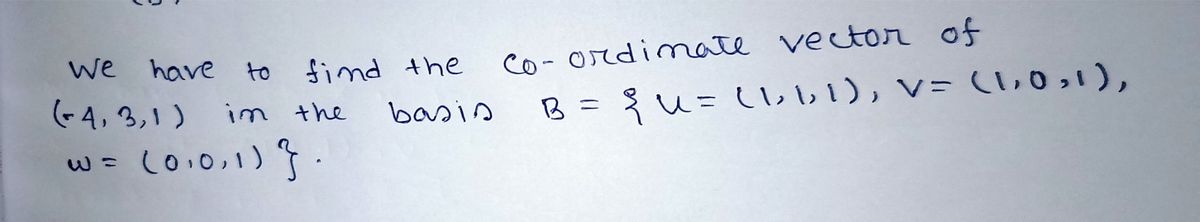 We have to find the co-ordinate vector of
(-4, 3, 1) in the basis B = { u = (1, 1, 1), v = (1, 0, 1),
w = (0, 0, 1) }.